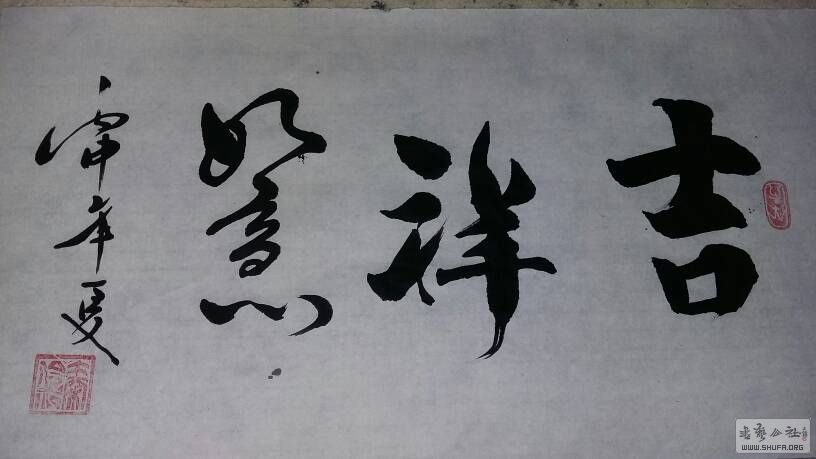 吉祥如意
丙申年夏
书艺公社
WWW.SHUFA.ORG